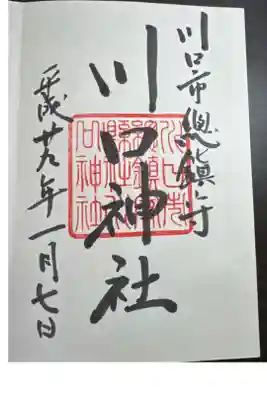 川口市總鎮守
川口神社
平成廿九年一月七日